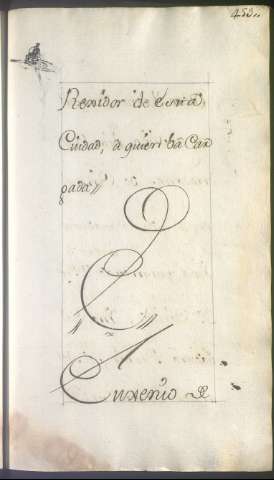 453
Rexidor de esta
Ciudad, a quien ba Car
gada //
Euxenio